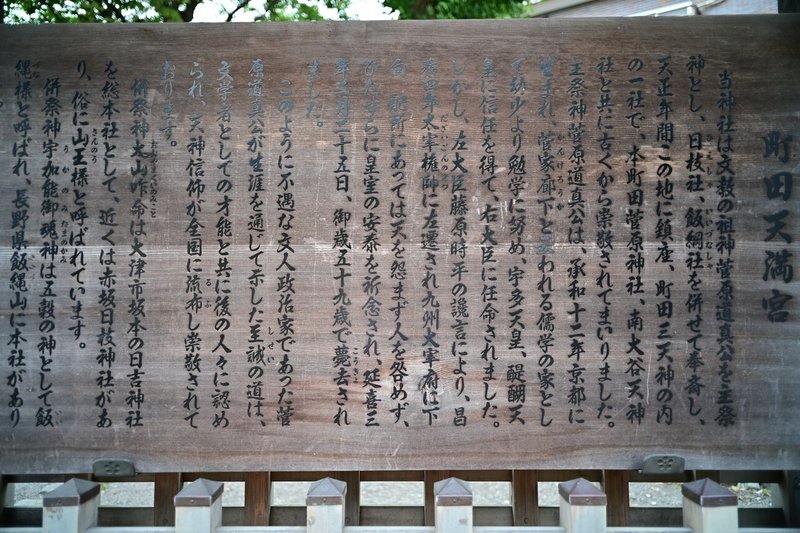 町田天満宮
当神社は文教の祖神菅原道真公を主祭
神とし、日枝社、飯綱社を併せて奉斎し、
天正年間この地に鎮座、町田三天神の内
の一社で、本町田菅原神社、南大谷天神
社と共に古くから崇敬されてまいりました。
主祭神菅原道真公は、承和十二年京都に
生まれ、菅家廊下と云われる儒学の家とし
て幼少より勉学に努め、宇多天皇、醍醐天
皇に信任を得て、右大臣に任命されました。
しかし、左大臣藤原時平の讒言により、昌
泰四年太宰権帥に左遷され九州太宰府に下
向、配所にあっては天を怨まず人を咎めず、
ひたすらに皇室の安泰を祈念され、延喜三
年二月二十五日、御歳五十九歳で薨去され
ました。
このように不遇な文人政治家であった菅
原道真公が生涯を通して示した至誠の道は、
文学者としての才能と共に後の人々に認め
られ、天神信仰が全国に流布し崇敬されて
おります。
併祭神大山咋命は大津市坂本の日吉神社
を総本社として、近くは赤坂日枝神社があ
り、俗に山王様と呼ばれています。
併祭神宇加能御魂神は五穀の神として飯
縄様と呼ばれ、長野県飯縄山に本社があり